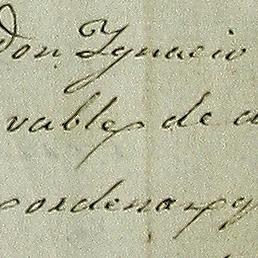 don Ygnacio
vables de a
ordenar y